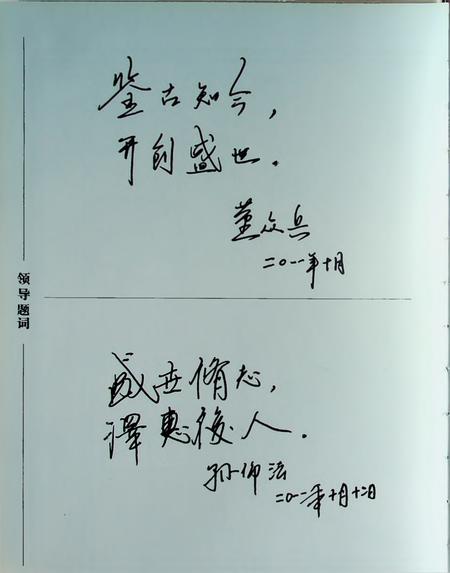 鉴古知今，
开创盛世。
董众兵
二〇一一年十月
领导题词
盛世修志，
泽惠後人。
孙仰法
二〇一一年十月十二日